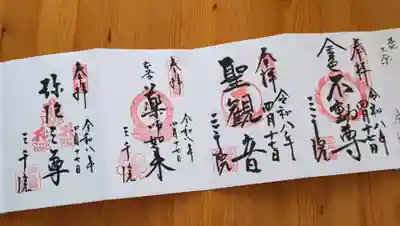 大原
奉拝
令和八年
四月十七日
金色不動尊
三千院
奉拝
令和八年
四月十七日
聖観音
三千院
奉拝
令和八年
四月十七日
本尊
薬師如来
三千院
奉拝
令和八年
四月十七日
弥陀三尊
三千院